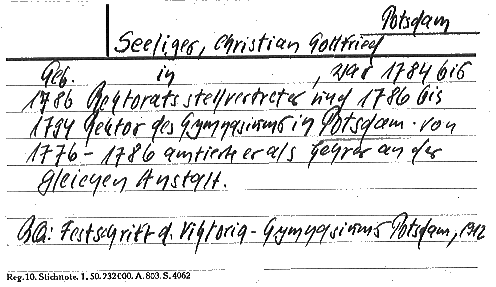 Potsdam
Seeliger, Christian Gottfried
Geb. in , war 1784 bis
1786 Rektoratsstellvertreter und 1786 bis
1794 Rektor des Gymnasiums in Potsdam. Von
1776 - 1786 amtierte er als Lehrer an der
gleichen Anstalt.
BQ: Festschrift d. Viktoria-Gymnasiums Potsdam, 1912
Reg. 10. Stichnote. 1. 50. 232000. A. 803. S. 4062